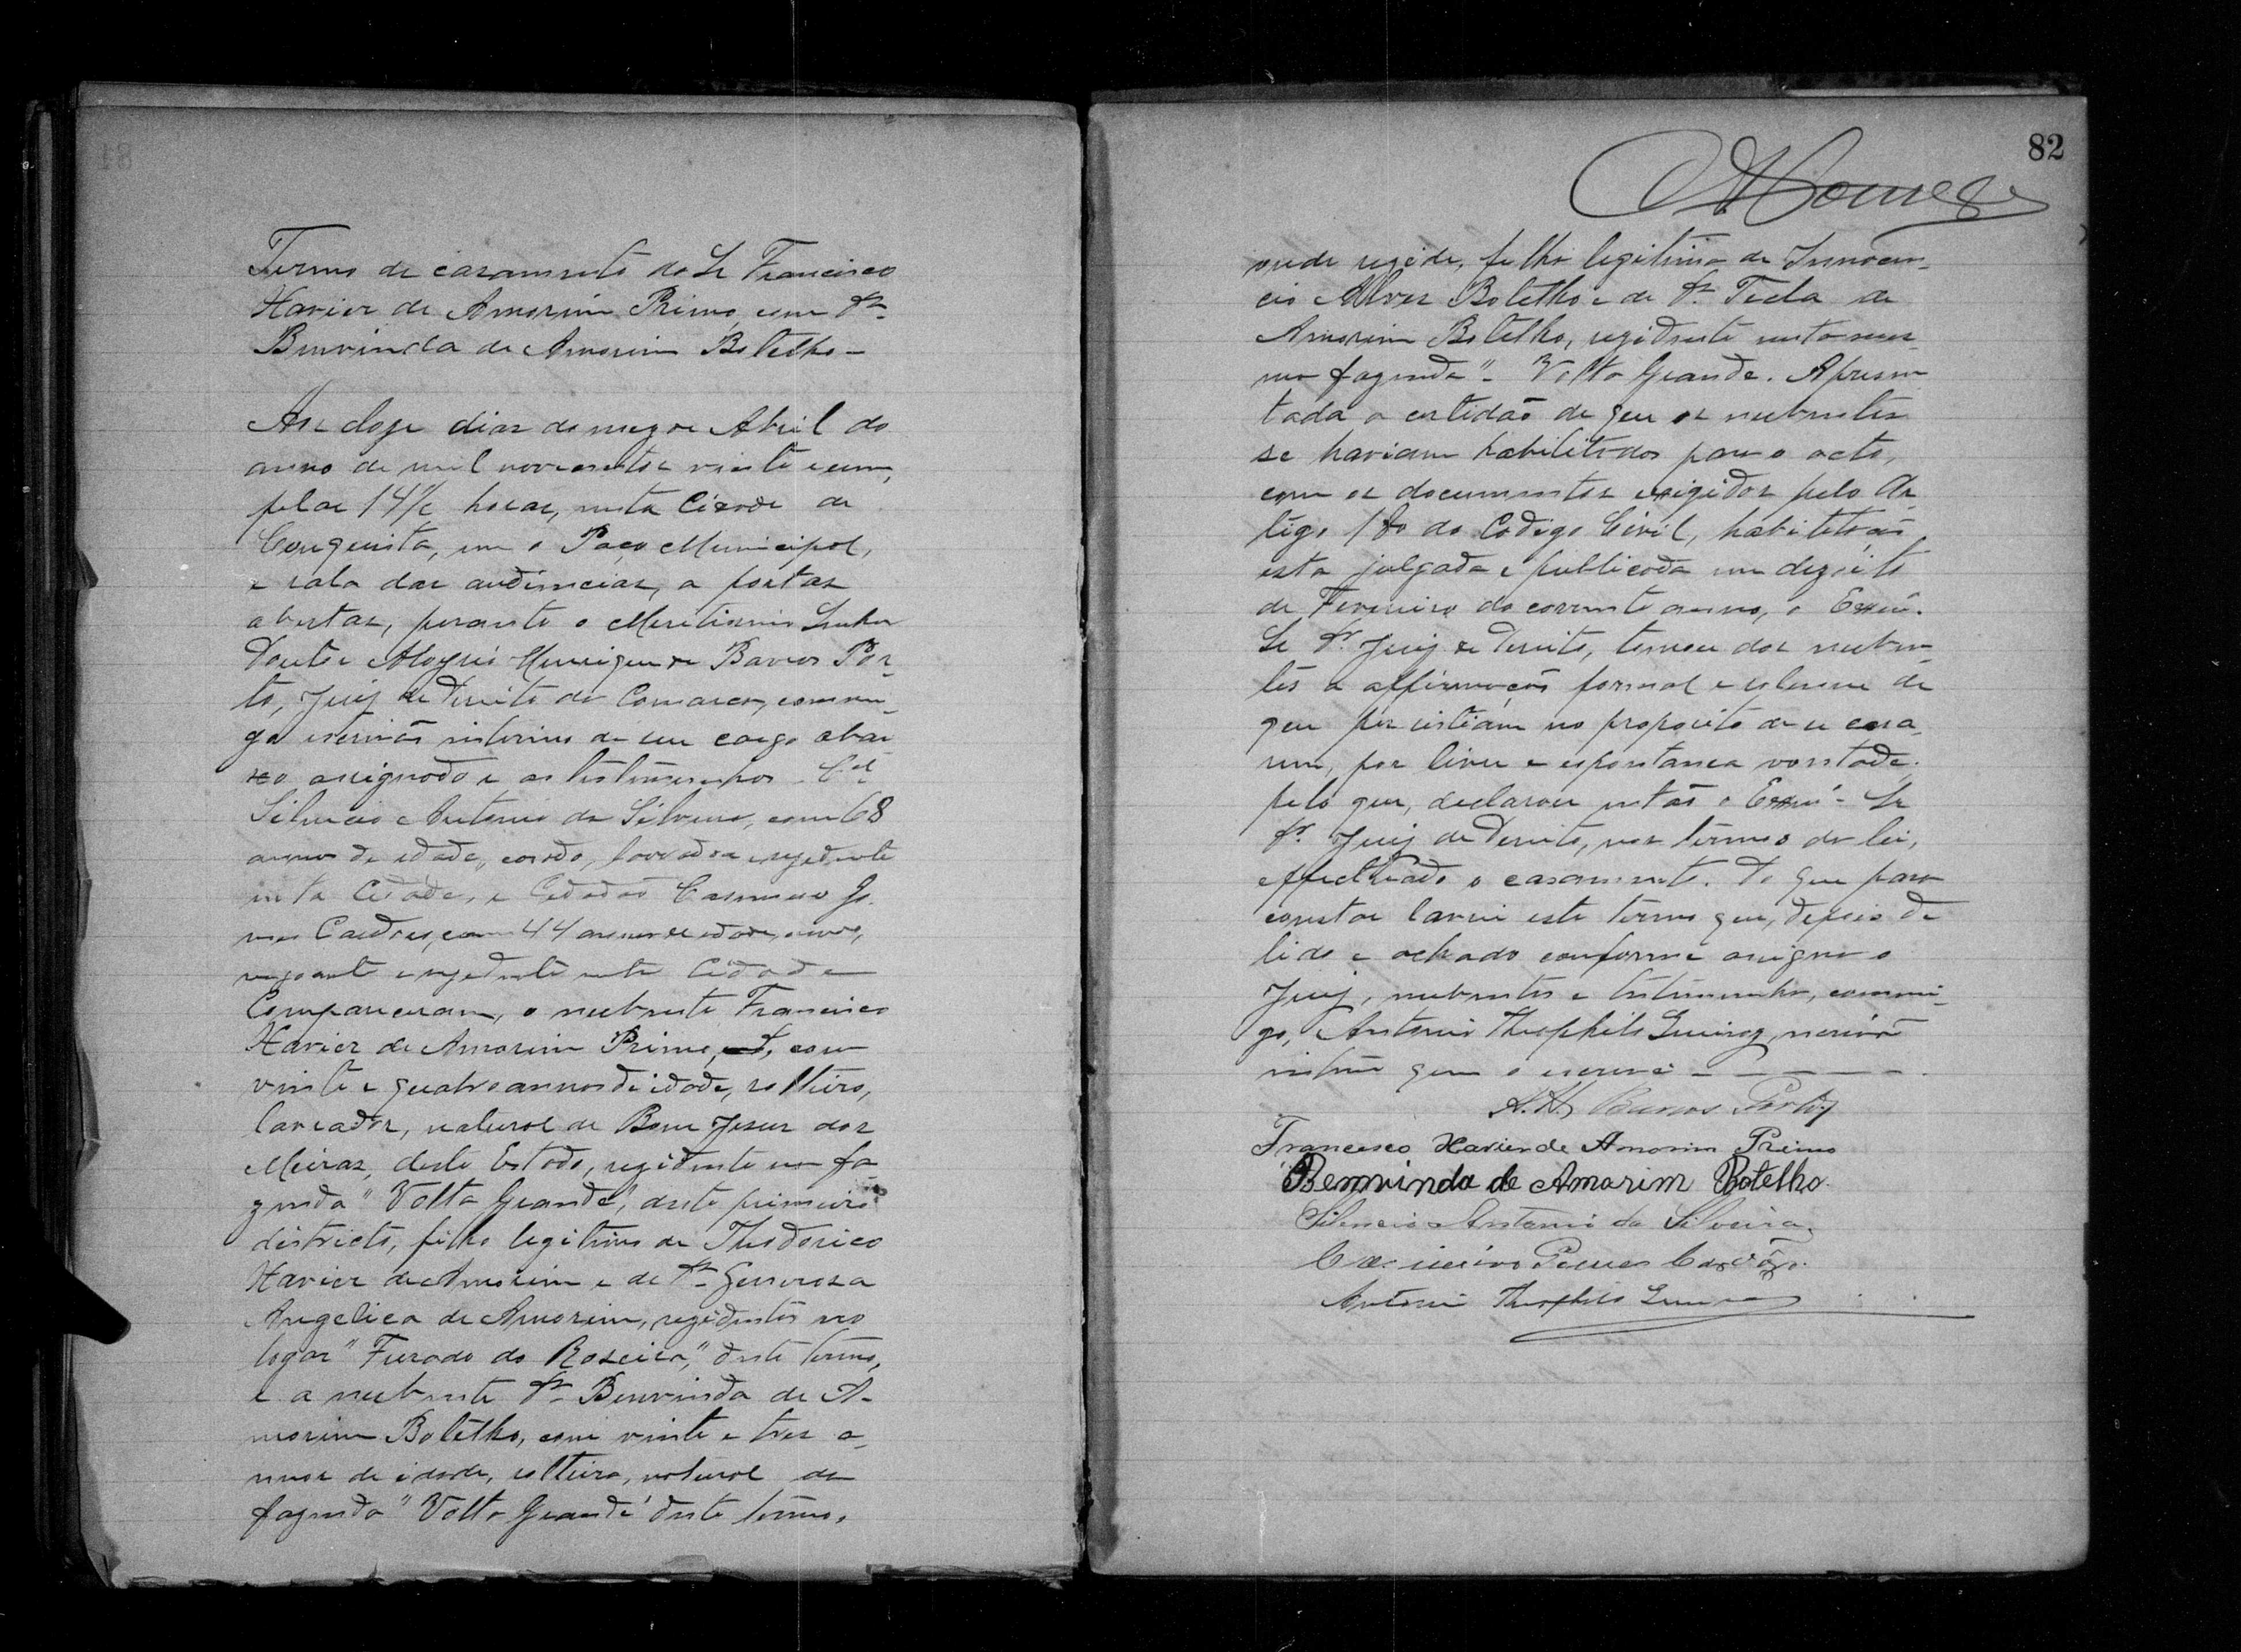 Termo de casamento do Sr Francisco
Xavier de Amorim Primo, com Da
Benvinda de Amorim Botelho-
Aos doze dias do mez de Abril do
anno de mil novecentos e vinte e um,
pelas 14½ horas, nesta Cidade de
Conquista, em o Paço Municipal,
e sala das audiencias, a portas
abertas, perante o Meritissimo Senhor
Doutor Aloysio Henrique de Barros Por-
to, Juiz de Direito da Comarca, commi-
go escrivão interino de seu cargo abai
xo assignado e as testimunhas Cel
Silencio Antonio da Silveira, com 68
annos de idade, casado, lavrador e rezidente
nesta Cidade, e Cidadão Casimiro Go
mes Cardoso, com 44 annos de idade,
negociante e rezidente nesta Cidade
Compareceram, o nubente Francisco
Xavier de Amorim Primo, com
vinte e quatro annos de idade, solteiro,
lavrador, natural de Bom Jesus dos
Meiras, deste Estado, rezidente em fa-
zenda "Volta Grande", deste primeiro
districto, filho legitimo de Theodorico
Xavier de Amorim e de Da Generosa
Angelica de Amorim, rezidentes no
logar "Furado da Roseira", deste termo,
e a nubente Da Benvinda de A-
morim Botelho, com vinte e tres a-
nnos de idade, solteira, natural da
fazenda "Volta Grande" deste termo,
82
onde rezide, filha legitima de Innocen-
cio Alves Botelho e de Da Tecla de
Amorim Botelho, rezidente nesta mes-
ma fazenda "- Volta Grande. Apresen
tada a certidão de que os nubentes
se haviam habilitados para o acto,
com os documentos exigidos pelo Ar
tigo 180 do Codigo Civil, habilitação
esta julgada e publicada em dezoito
de Fevereiro do corrente anno, o Exmo.
Sr Dr Juiz de Direito, tomou dos nuben-
tes a affirmação formal e solemne de
que persistiam no proposito de se casa-
rem, por livre e espontanea vontade;
pelo que, declarou então o Exmo- Sr
Dr Juiz de Direito, nos termos da lei,
effectuado o casamento. Do que para
constar lavrei este termo que, depois de
lido e achado conforme assigna o
Juiz, nubentes e testimunhas, commi-
go, Antonio Theophilo Queiroz, escrivão
interino que o escrevi - - - - -
A. H. Barros Porto
Francisco Xavier de Amorim Primo
Benvinda de Amorim Botelho.
Silencio Antonio da Silveira,
Casimiro Gomes Cardoso.
Antonio Theophilo Queiroz